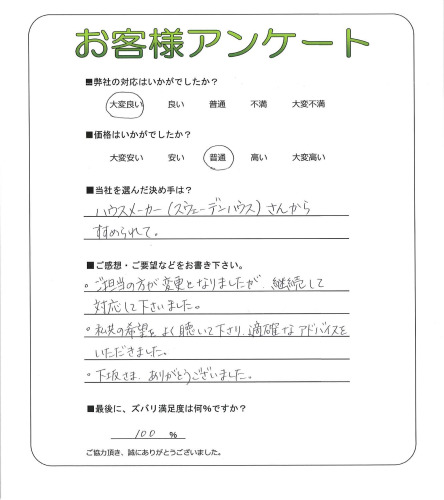 お客様アンケート
■弊社の対応はいかがでしたか?
大変良い 良い 普通 不満 大変不満
■価格はいかがでしたか?
大変安い 安い 普通 高い 大変高い
■当社を選んだ決め手は?
ハウスメーカー(スウェーデンハウス)さんから
すすめられて。
■ご感想・ご要望などをお書き下さい。
。ご担当の方が変更となりましたが、継続して
対応して下さいました。
。私共の希望をよく聴いて下さり、適確なアドバイスを
いただきました。
。下坂さま、ありがとうございました。
■最後に、ズバリ満足度は何%ですか?
100 %
ご協力頂き、誠にありがとうございました。